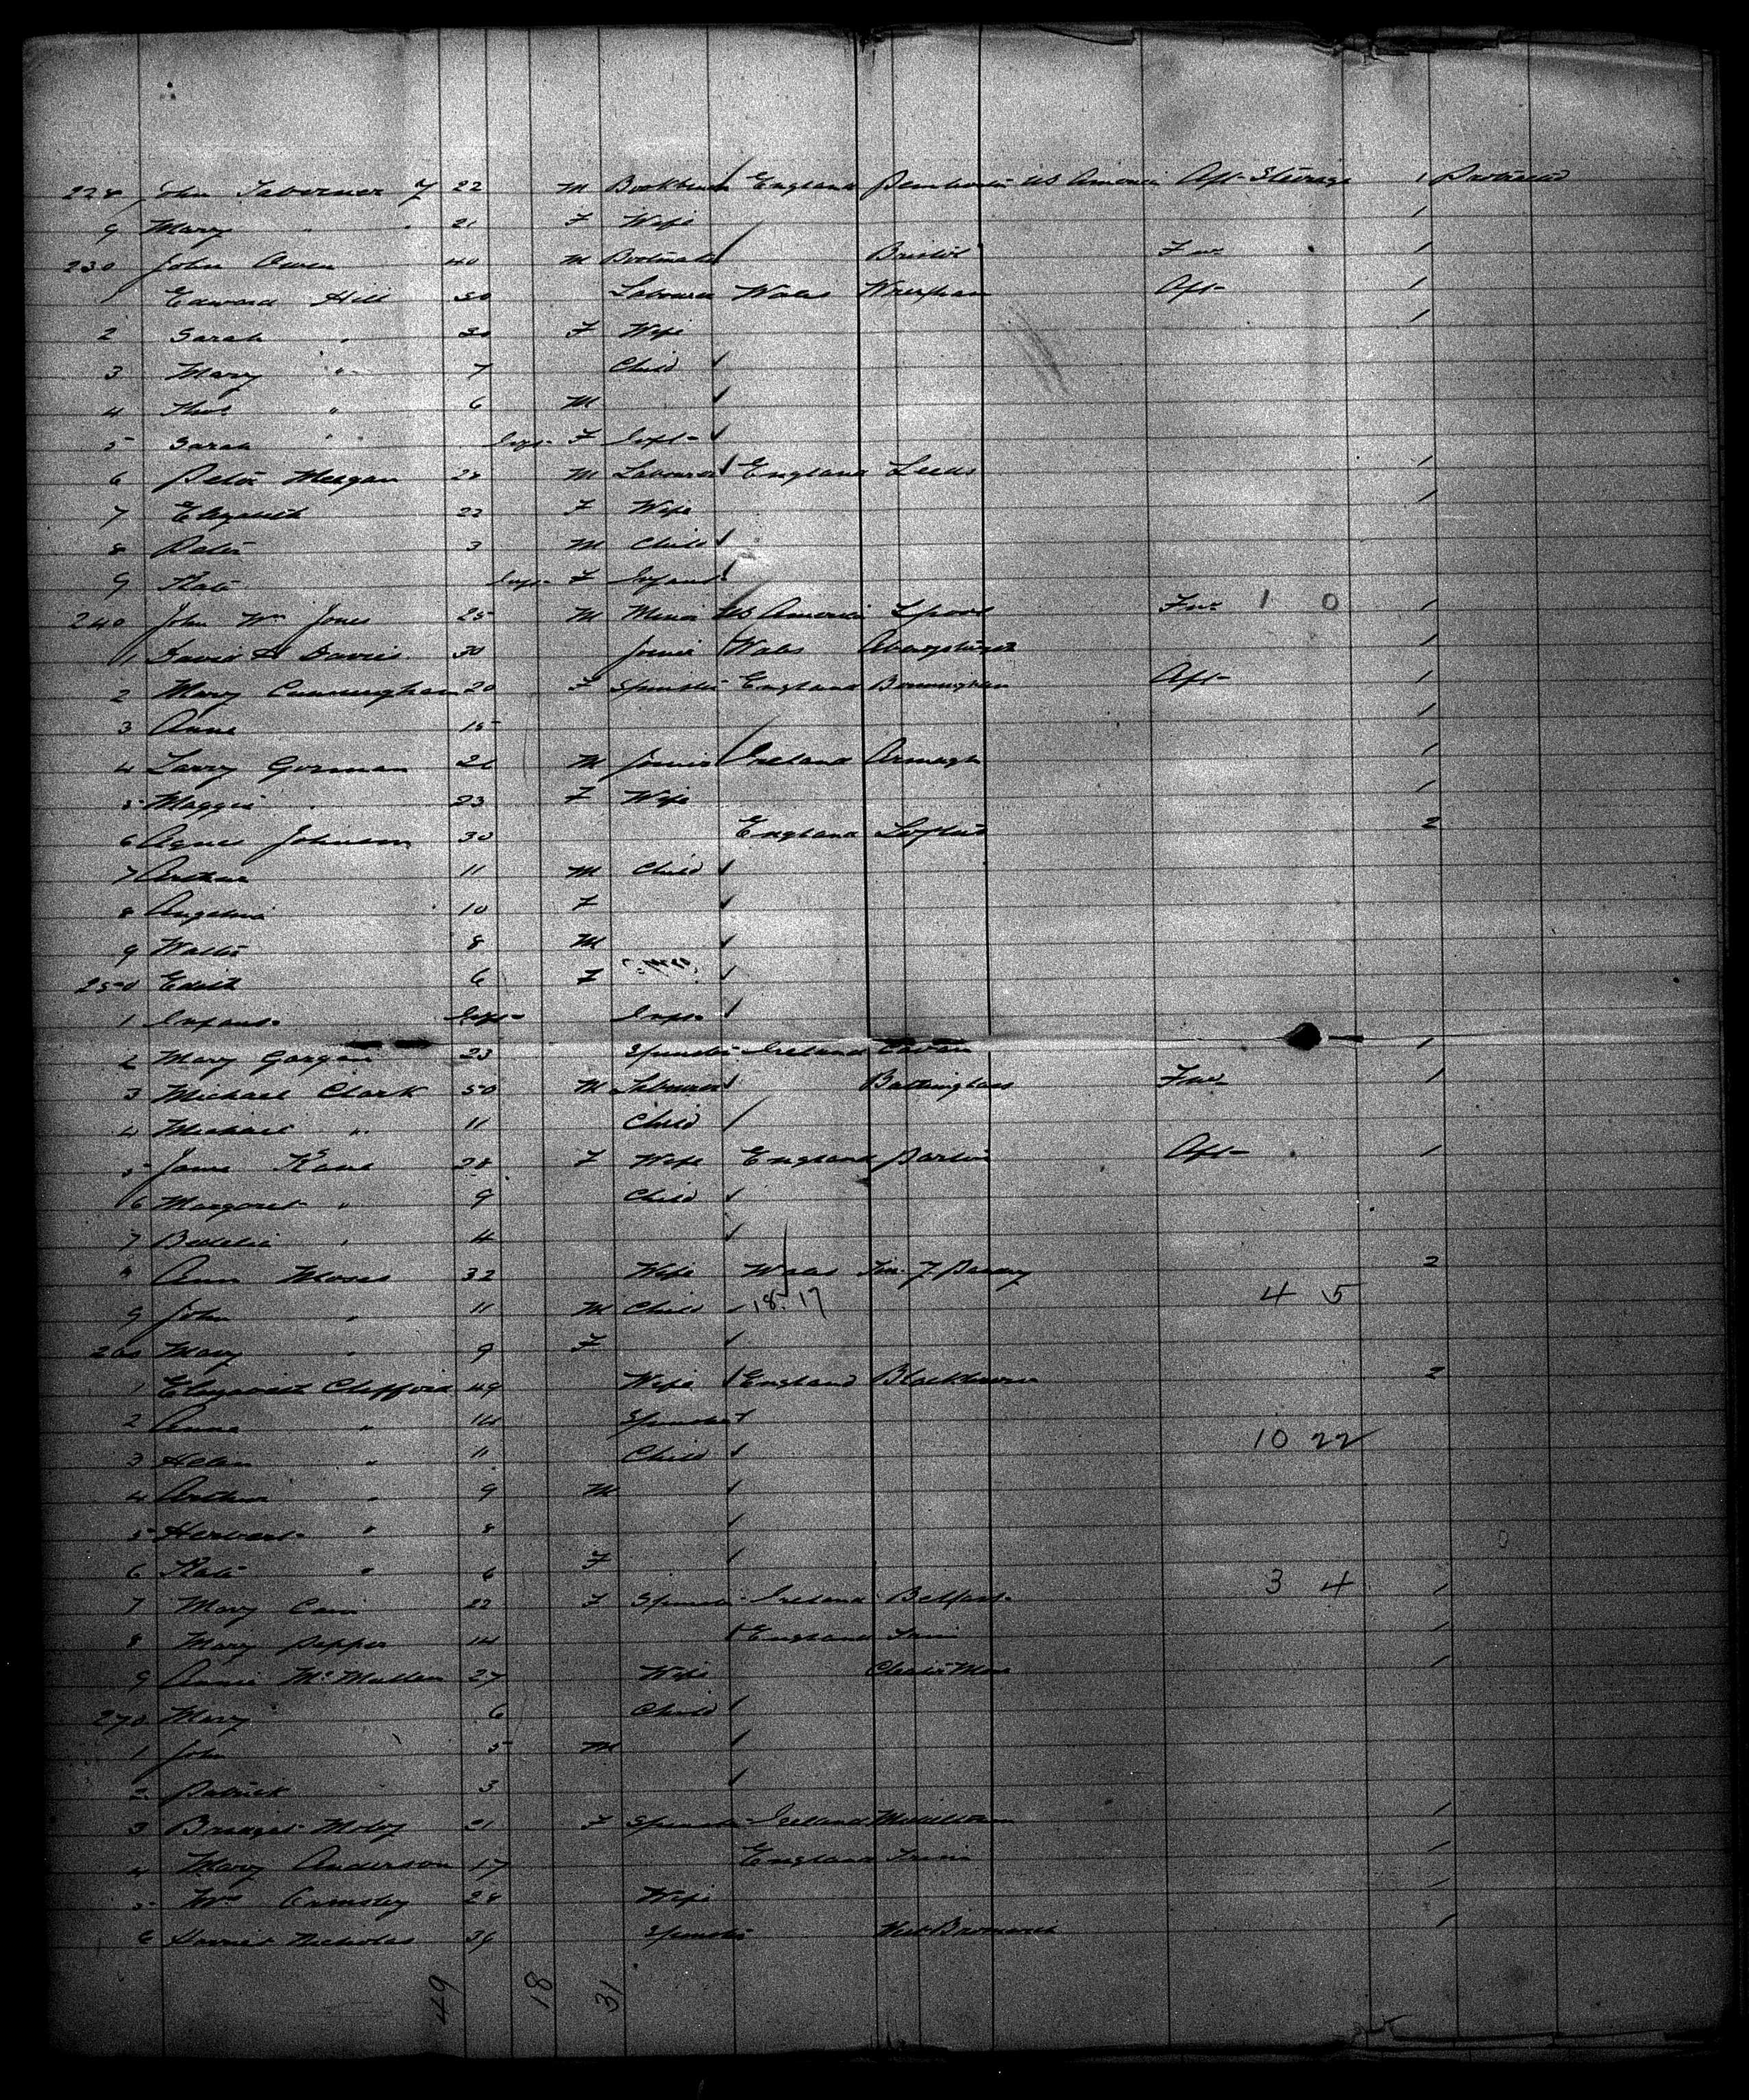 228 John Taberner 22 M England U S America Aft Steerage 1
9 Mary " 21 F Wife 1
230 John Owen 40 M Bristol Fwd 1
1 Edward Hill 30 Labourer Wales Wrexham Aft 1
2 Sarah " 30 F Wife 1
3 Mary " 7 Child
4 Thos " 6 M
5 Sarah " Inft F Inft
6 Peter Meagan 28 M Labourer England Leeds 1
7 Elizabeth 22 F Wife 1
8 Peter 3 M Child
9 Kate Inft F Infant
240 John Wm Jones 25 M Miner US America L'pool Fwd 1 0 1
1 David H Davies 30 Joiner Wales 1
2 Mary Cunningham 20 F Spinster England Aft 1
3 Anne 15 1
4 Larry Gorman 26 M Joiner Ireland Armagh 1
5 Maggie " 23 F Wife 1
6 Agnes Johnson 30 England Loftus 2
7 Arthur 11 M Child
8 Angelina 10 F
9 Walter 8 M
250 Edith 6 F
1 Infant Inft Inft
2 Mary Gargan 23 Spinster Ireland Cavan 1
3 Michael Clark 50 M Labourer Baltinglass Fwd 1
4 Michael " 11 Child
5 Jane Kane 28 F Wife England Aft 1
6 Margaret " 9 Child
7 Bedelia " 4
8 Ann Moses 32 Wife Wales 2
9 John " 11 M Child 18 17 4 5
260 Mary " 9 F
1 Elizabeth Clifford 49 Wife England Blackburn 2
2 Anna " 14 Spinster
3 Helen " 11 Child 10 22
4 Arthur " 9 M
5 Herbert " 8
6 Kate " 6 F
7 Mary Cain 22 F Spinster Ireland Belfast 3 4 1
8 Mary Pepper 14 England 1
9 Annie McMullen 27 Wife 1
270 Mary 6 Child
1 John 5 M
2 Patrick 3
3 Bridget 21 F Spinster Ireland Middleton 1
4 Mary Anderson 17 England 1
5 Ormsby 28 Wife 1
6 Harriet Nicholas 39 Spinster West Bromwich 1
49 18 31